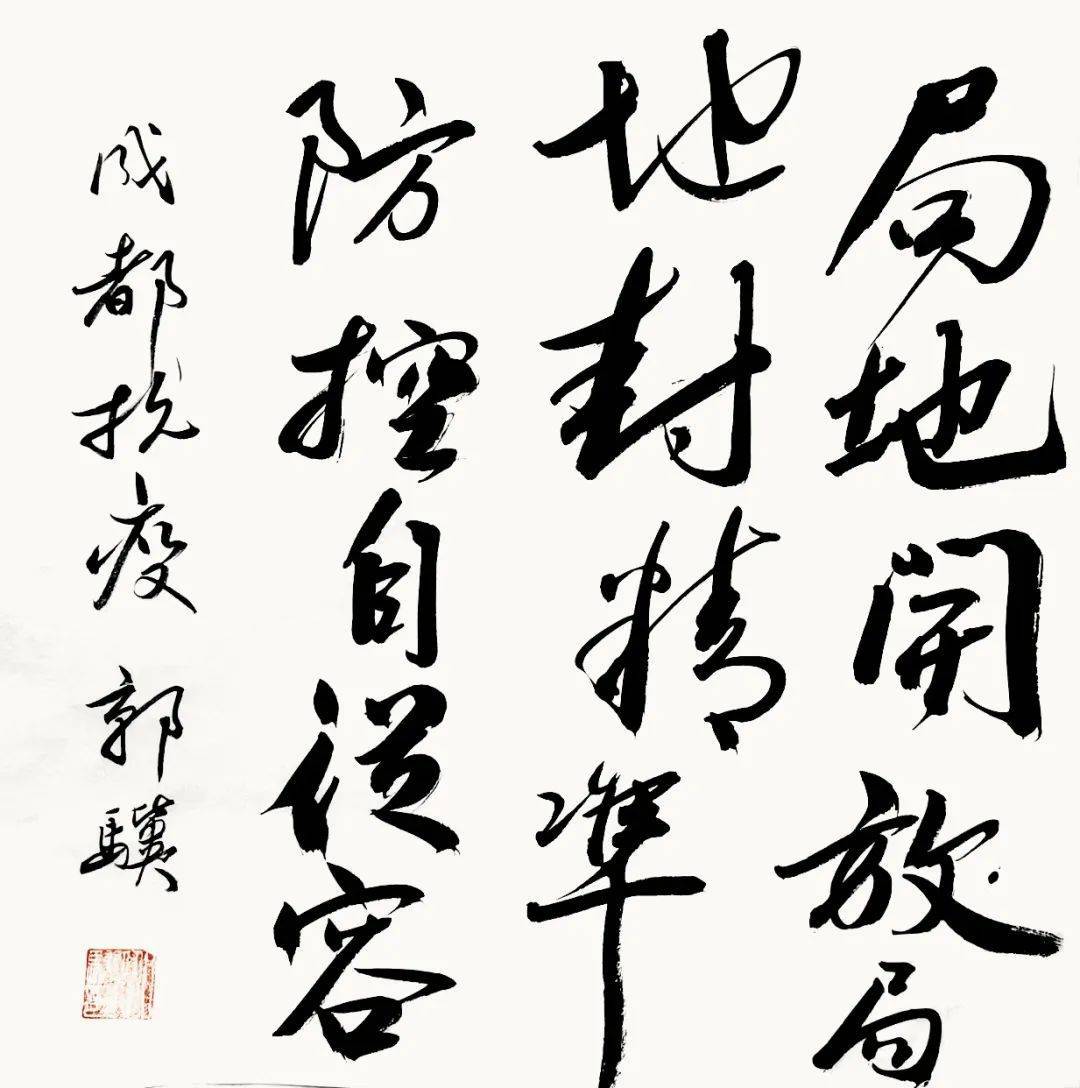 局地開放局
地封精準
防控自從容
成都抗疫 郭驥